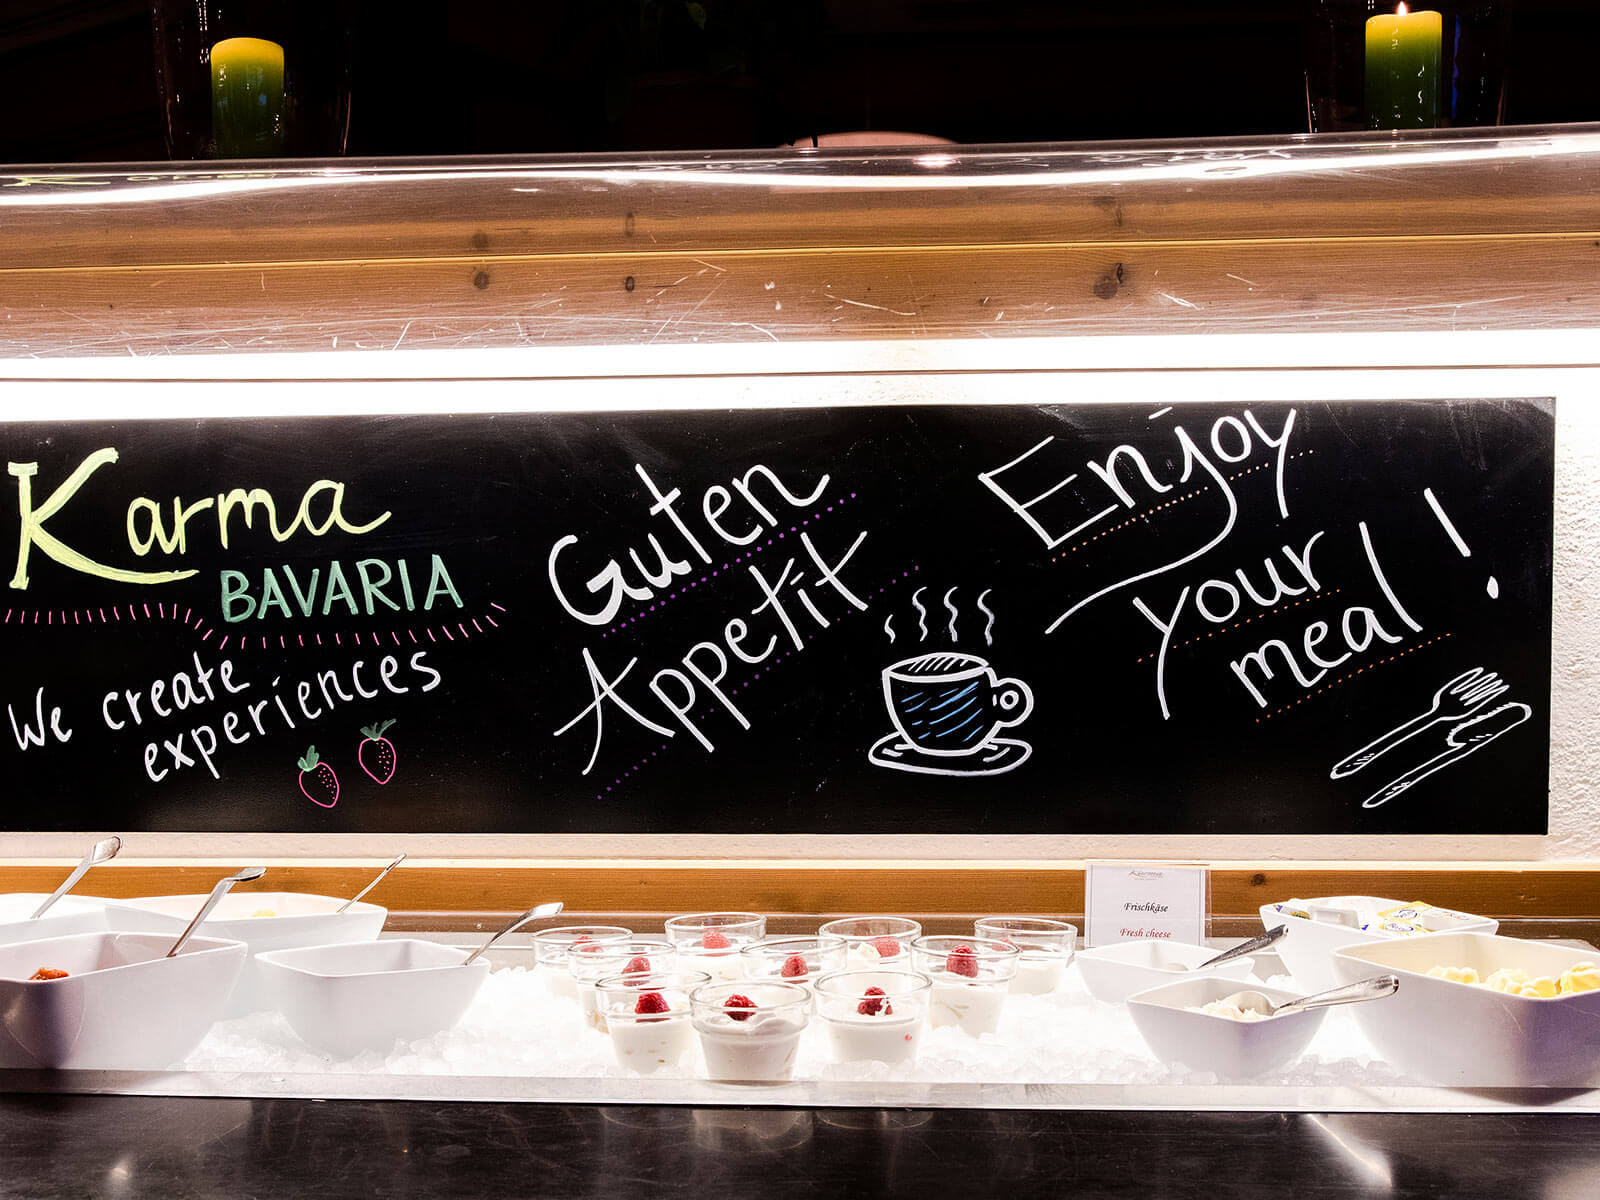 Karma
BAVARIA
We create
experiences
Guten
Appetit
Enjoy
your
meal!
Karma
Frischkäse
Fresh cheese